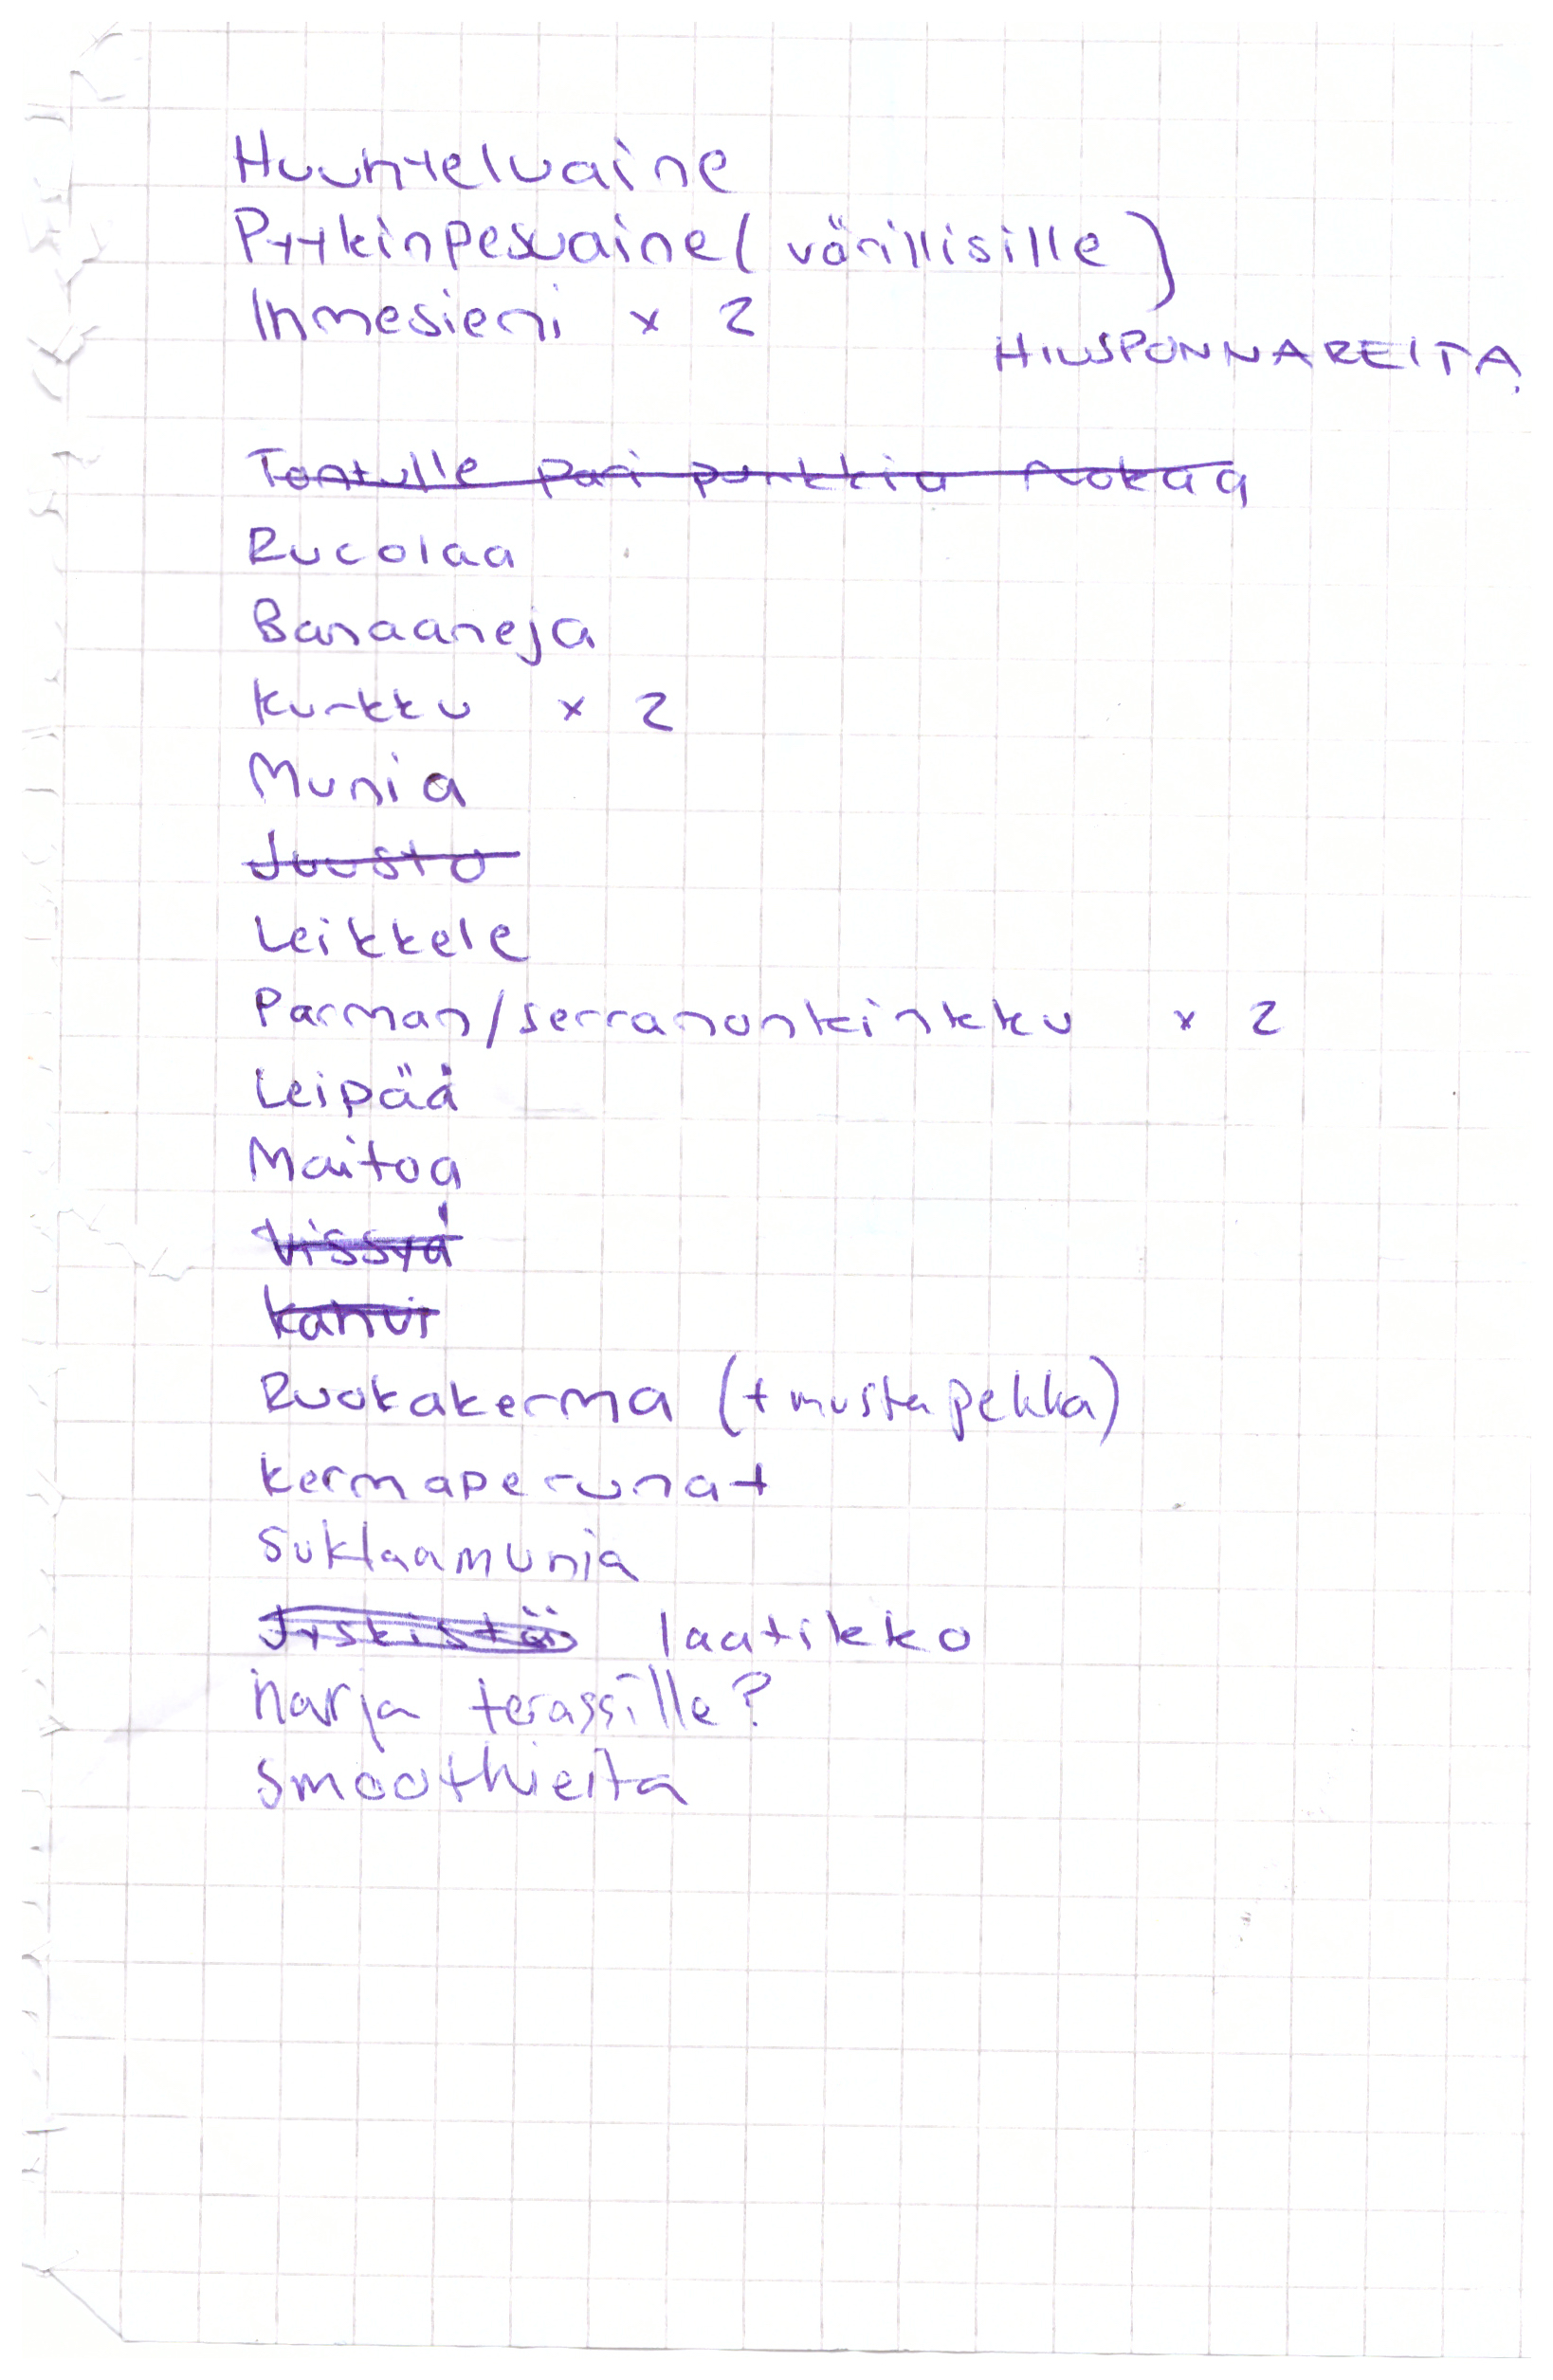 Huuhteluaine
Pyykinpesuaine (värillisille)
Ihmesieni x 2
HIUSPONNAREITA
Tontulle pari purkkia ruokaa
Rucolaa
Banaaneja
Kurkku x 2
Munia
Juusto
Leikkele
Parman/serranonkinkku x 2
Leipää
Maitoa
Vissyä
Kahvi
Ruokakerma (+ mustapekka)
Kermaperunat
Suklaamunia
Jyskistä laatikko
Harja terassille?
Smoothieita